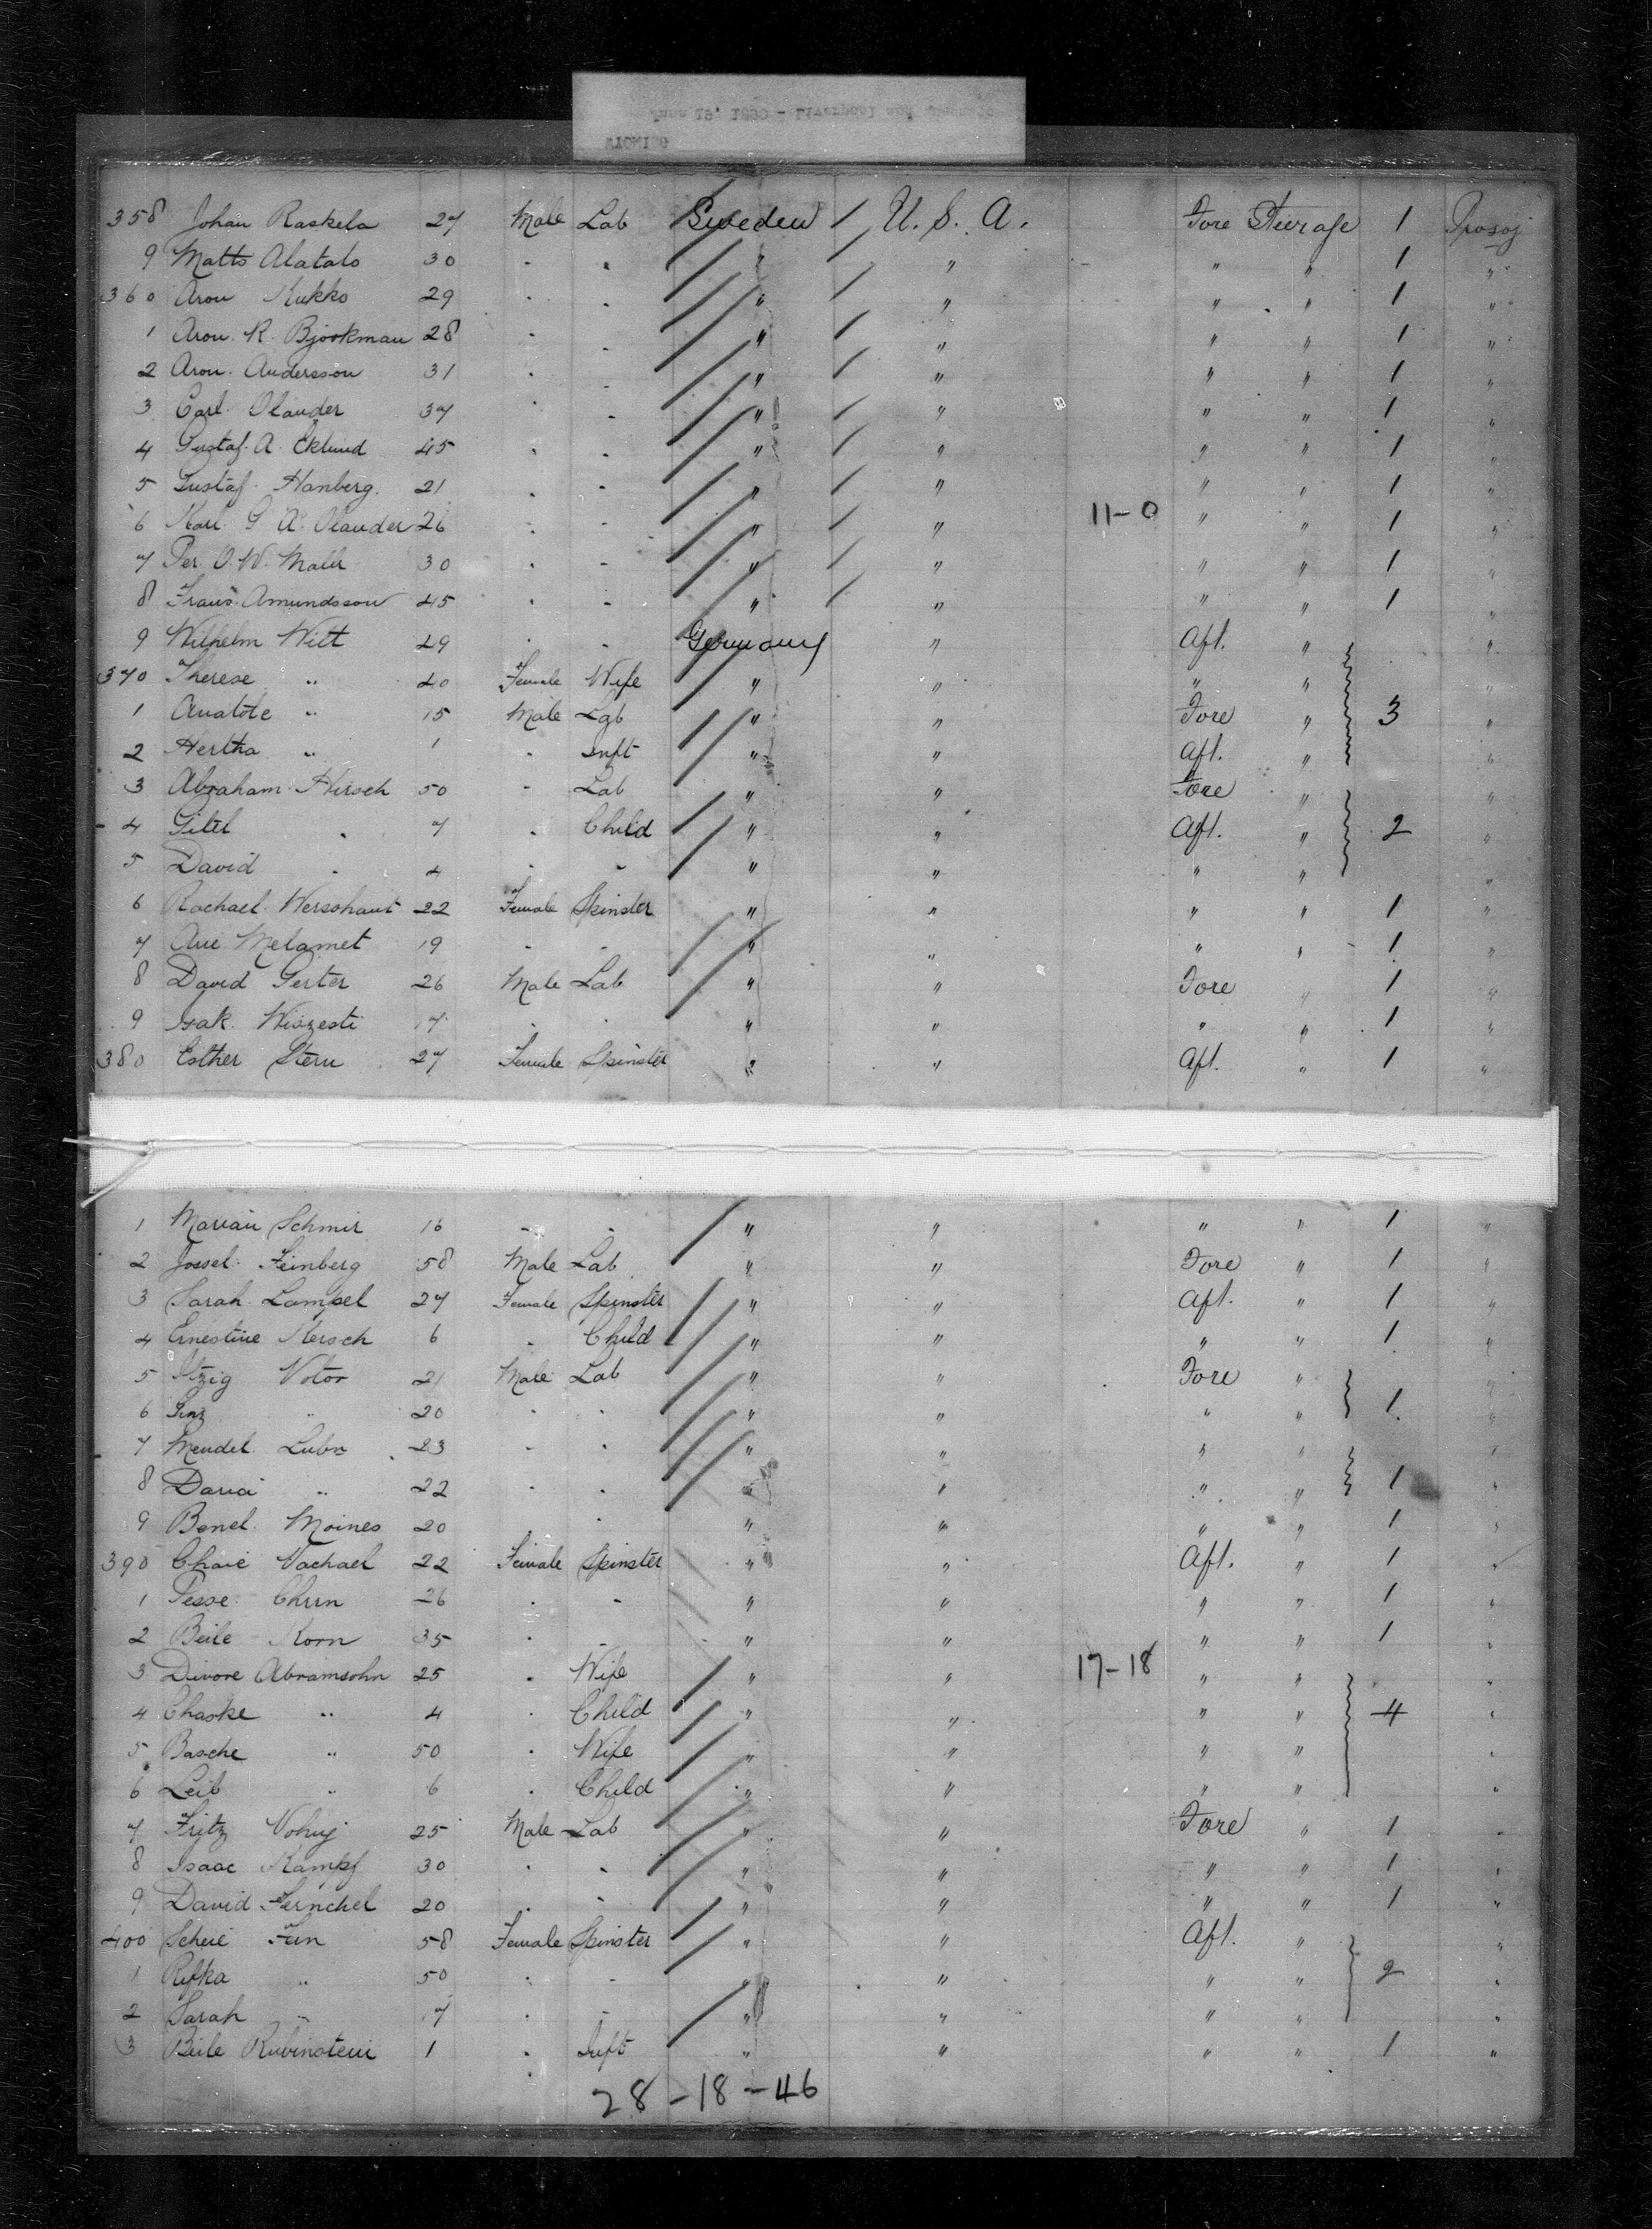 June 19, 1893 - Liverpool and
WYOMING
358 Johan Raskela 27 Male Lab Sweden / U. S. A. Fore Steerage 1
9 Matts Alatalo 30 - - " / " " " 1 "
360 Aron Kukko 29 - - " / " " " 1 "
1 Aron R. Bjorkman 28 - " / " " " 1 "
2 Aron Andersson 31 - - " / " " " 1 "
3 Carl Olander 37 - - " / " " " 1 "
4 Gustaf A. Eklund 45 - - " / " " " 1 "
5 Gustaf Hanberg 21 - - " / " " " 1 "
6 Karl G A Olander 26 - - " / " 11-0 " " 1 "
7 Per O. W. Malm 30 - - " / " " " 1 "
8 Frans Amundsson 45 - - " / " " " 1 "
9 Wilhelm Witt 29 - - Germany " Aft. " "
370 Therese " 40 Female Wife " " " " "
1 Anatole " 15 Male Lab " " Fore " 3 "
2 Hertha " 1 - Inft " " Aft. " "
3 Abraham Hirsch 50 - Lab " " Fore " "
4 Gitel " 7 - Child " " Aft. " 2 "
5 David " 4 - - " " " " "
6 Rachael 22 Female Spinster " " " " 1 "
7 Melamet 19 - - " " " " 1 "
8 David Gerter 26 Male Lab " " Fore " 1 "
9 Isak 17 - - " " " " 1 "
380 Esther Stern 27 Female Spinster " " Aft. " 1 "
1 Schmir 16 - - " " " " 1 "
2 Jossel Feinberg 58 Male Lab " " Fore " 1 "
3 Sarah Lampel 27 Female Spinster " " Aft. " 1 "
4 Ernestine Kersch 6 - Child " " " " 1 "
5 Itzig Votor 21 Male Lab " " Fore " "
6 " 20 - - " " " " 1 "
7 Mendel Lubn 23 - - " " " " "
8 " 22 - - " " " " 1 "
9 Benel Moines 20 - " " " " 1 "
390 Chaie Vachael 22 Female Spinster " " Aft. " 1 "
1 Pesse 26 - - " " " " 1 "
2 Beile Korn 35 - - " " " " 1 "
3 Divore Abramsohn 25 - Wife " " 17-18 " " "
4 Chaske " 4 - Child " " " " 4 "
5 Basche " 50 - Wife " " " " "
6 Leib " 6 - Child " " " " "
7 Fritz 25 Male Lab " " Fore " 1 "
8 Isaac Kampf 30 - - " " " " 1 "
9 David Fernchel 20 - - " " " " 1 "
400 Scheie 58 Female Spinster " " Aft. " "
1 Rifka " 50 - - " " " " 2 "
2 Sarah " 7 - - " " " " "
3 Beile Rubinstein 1 - Inft " " " " 1 "
28-18-46